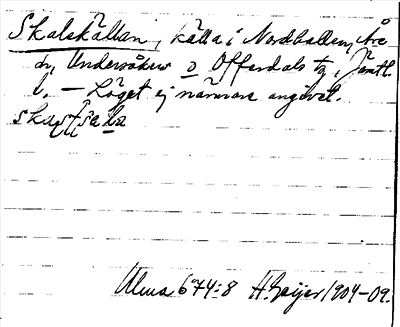 Skalskällan, källa i Nordhallen, Åre
sn, Undersåkers o Offerdals tg, Jämtl.
l. – Läget ej närmare angivet.
Ulma 674:8 H. Geijer 1904–09.